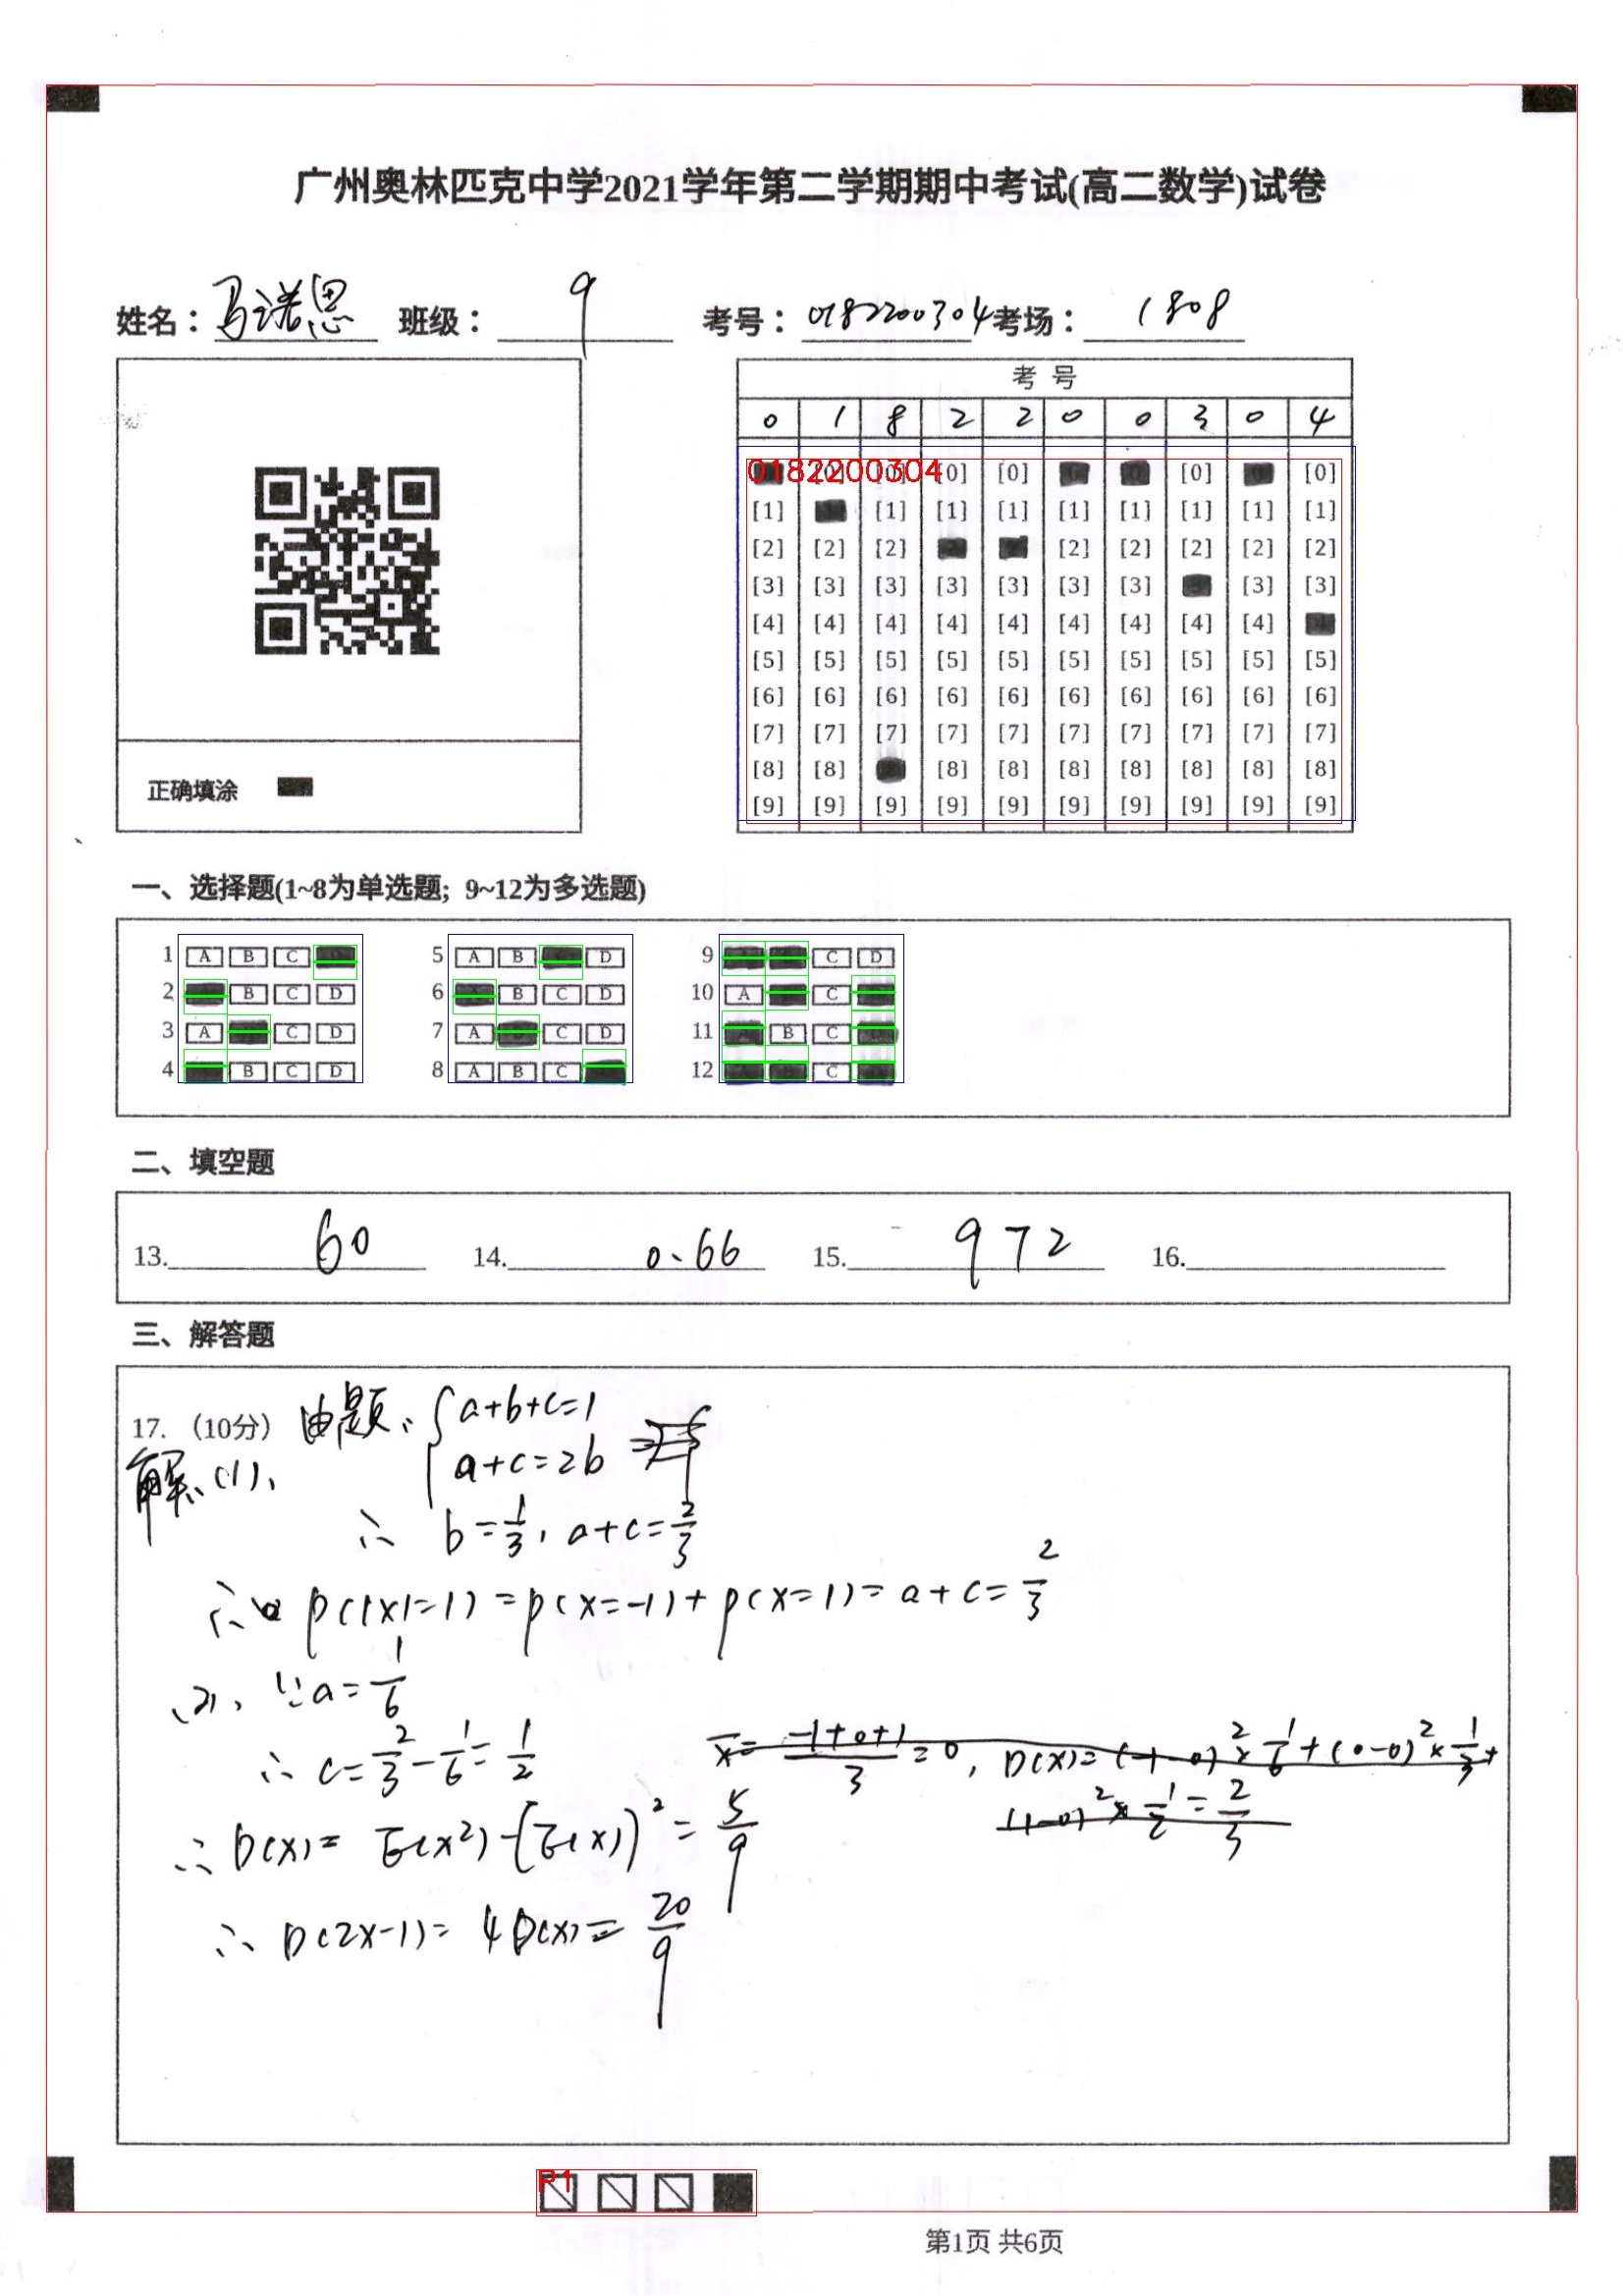 广州奥林匹克中学2021学年第二学期期中考试(高二数学)试卷
姓名：马诺思 班级：9 考号：0182200304 考场：1808
考 号
0 1 8 2 2 0 0 3 0 4
0182200304
[0] [0] [0] [0] [0]
[1] [1] [1] [1] [1] [1] [1] [1] [1]
[2] [2] [2] [2] [2] [2] [2] [2]
[3] [3] [3] [3] [3] [3] [3] [3] [3]
[4] [4] [4] [4] [4] [4] [4] [4] [4]
[5] [5] [5] [5] [5] [5] [5] [5] [5] [5]
[6] [6] [6] [6] [6] [6] [6] [6] [6] [6]
[7] [7] [7] [7] [7] [7] [7] [7] [7] [7]
[8] [8] [8] [8] [8] [8] [8] [8] [8]
[9] [9] [9] [9] [9] [9] [9] [9] [9] [9]
正确填涂
一、选择题(1~8为单选题; 9~12为多选题)
1 A B C 5 A B D 9 C D
2 B C D 6 B C D 10 A C
3 A C D 7 A C D 11 B C
4 B C D 8 A B C 12 C
二、填空题
13. 60 14. 0.66 15. 972 16.
三、解答题
17.（10分） 由题: { a+b+c=1
解:(1)、 a+c=2b
∴ b=1/3, a+c=2/3
∴ P(|X|=1)=P(X=-1)+P(X=1)=a+c=2/3
(2)、∵a=1/6
∴ c=2/3-1/6=1/2
x̄=(-1+0+1)/3=0, D(X)=(-1-0)²×1/6+(0-0)²×1/3+
(1-0)²×1/2=2/3
∴ D(X)=E(X²)-[E(X)]²=5/9
∴ D(2X-1)=4D(X)=20/9
P1
第1页 共6页